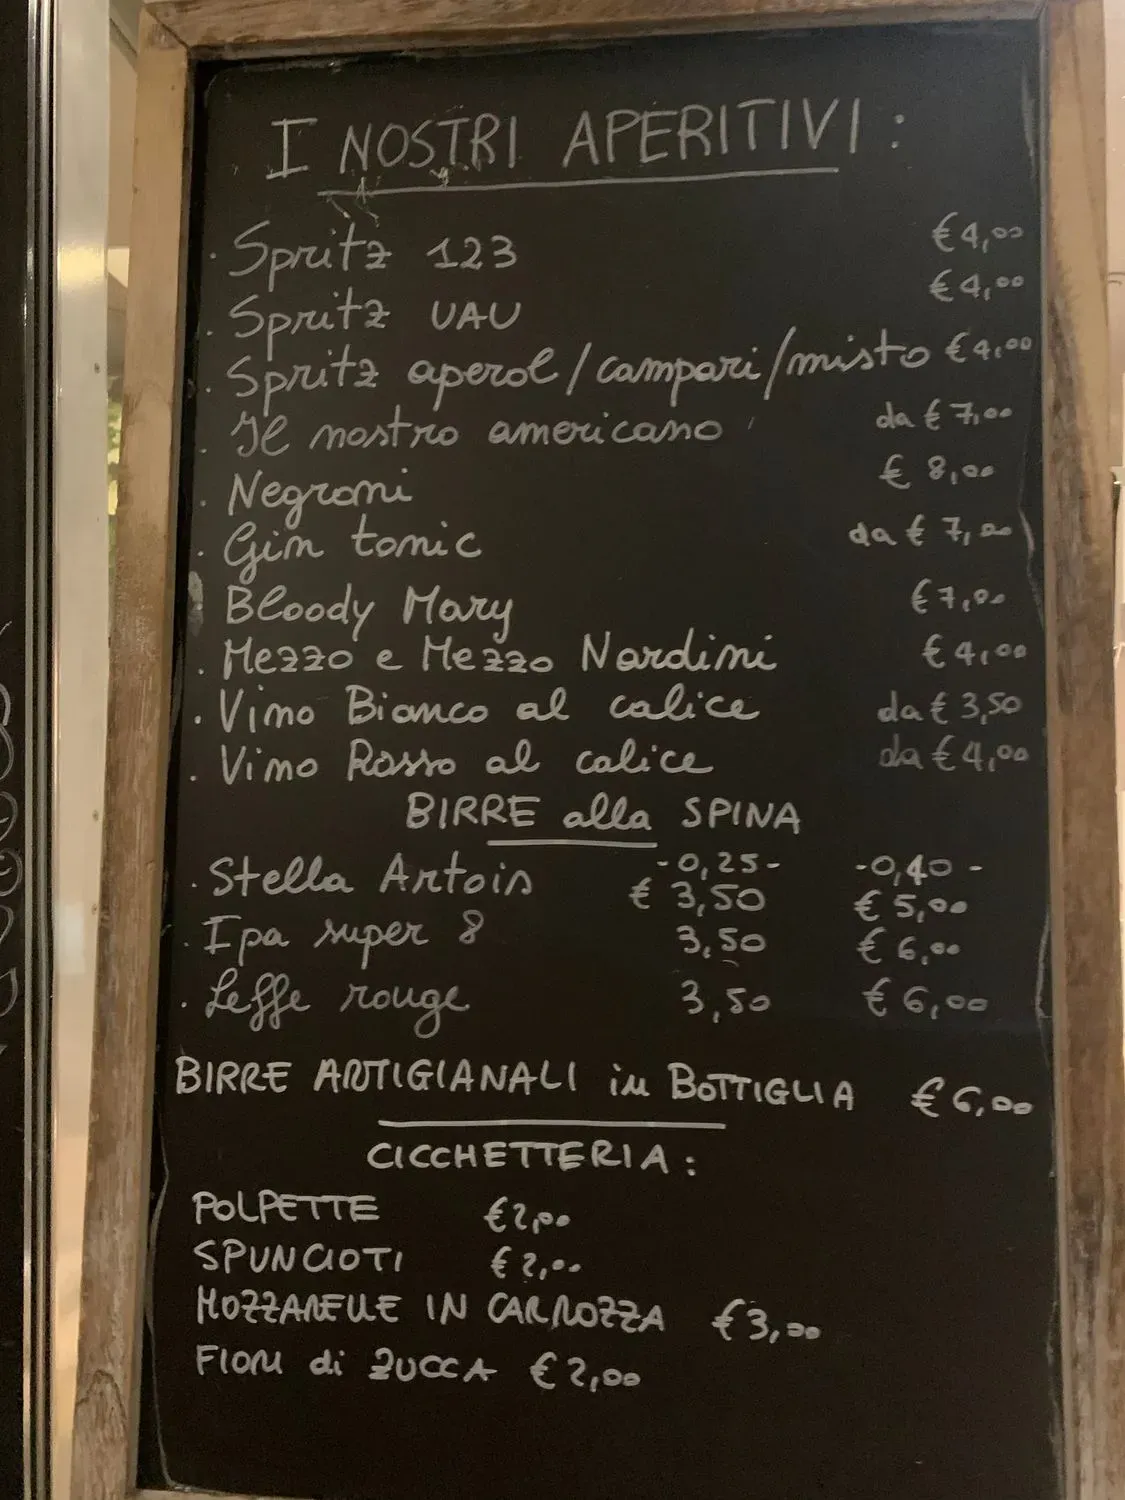 I NOSTRI APERITIVI:
· Spritz 123 € 4,00
· Spritz UAU € 4,00
· Spritz aperol/campari/misto € 4,00
· Il nostro americano da € 7,00
· Negroni € 8,00
· Gin tonic da € 7,00
· Bloody Mary € 7,00
· Mezzo e Mezzo Nardini € 4,00
· Vino Bianco al calice da € 3,50
· Vino Rosso al calice da € 4,00
BIRRE alla SPINA
-0,25- -0,40-
· Stella Artois € 3,50 € 5,00
· Ipa super 8 3,50 € 6,00
· Leffe rouge 3,50 € 6,00
BIRRE ARTIGIANALI in BOTTIGLIA € 6,00
CICCHETTERIA:
POLPETTE € 2,00
SPUNCIOTI € 2,00
MOZZARELLE IN CARROZZA € 3,00
FIORI di ZUCCA € 2,00